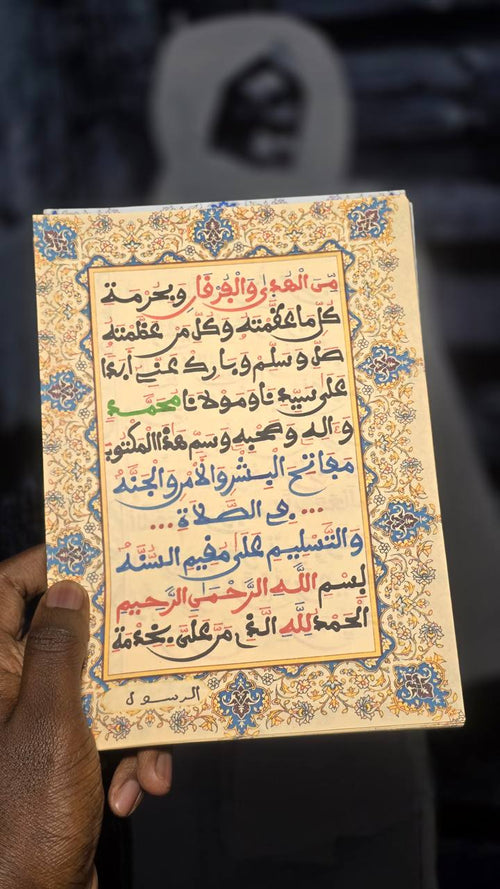 مِّنَ الْهُدٰى وَالْفُرْقَانِ وَبِحُرْمَةِ
كُلِّ مَا عَظَّمْتَهُ وَكُلِّ مَنْ عَظَّمْتَهُ
صَلِّ وَسَلِّمْ وَبَارِكْ عَنِّى أَبَدًا
عَلَى سَيِّدِنَا وَمَوْلَانَا مُحَمَّدٍ
وَءَالِهِ وَصَحْبِهِ وَسَمِّ هَذَا الْمَكْتُوبَ
مَفَاتِحَ الْبِشْرِ وَالْأَمْنِ وَالْجَنَّهْ
... فِى الصَّلَاةِ ...
وَالتَّسْلِيمِ عَلَى مُقِيمِ السُّنَّهْ
بِسْمِ اللَّهِ الرَّحْمَٰنِ الرَّحِيمِ
الْحَمْدُ لِلَّهِ الَّذِى مَنَّ عَلَىَّ بِخِدْمَةِ
الرسول